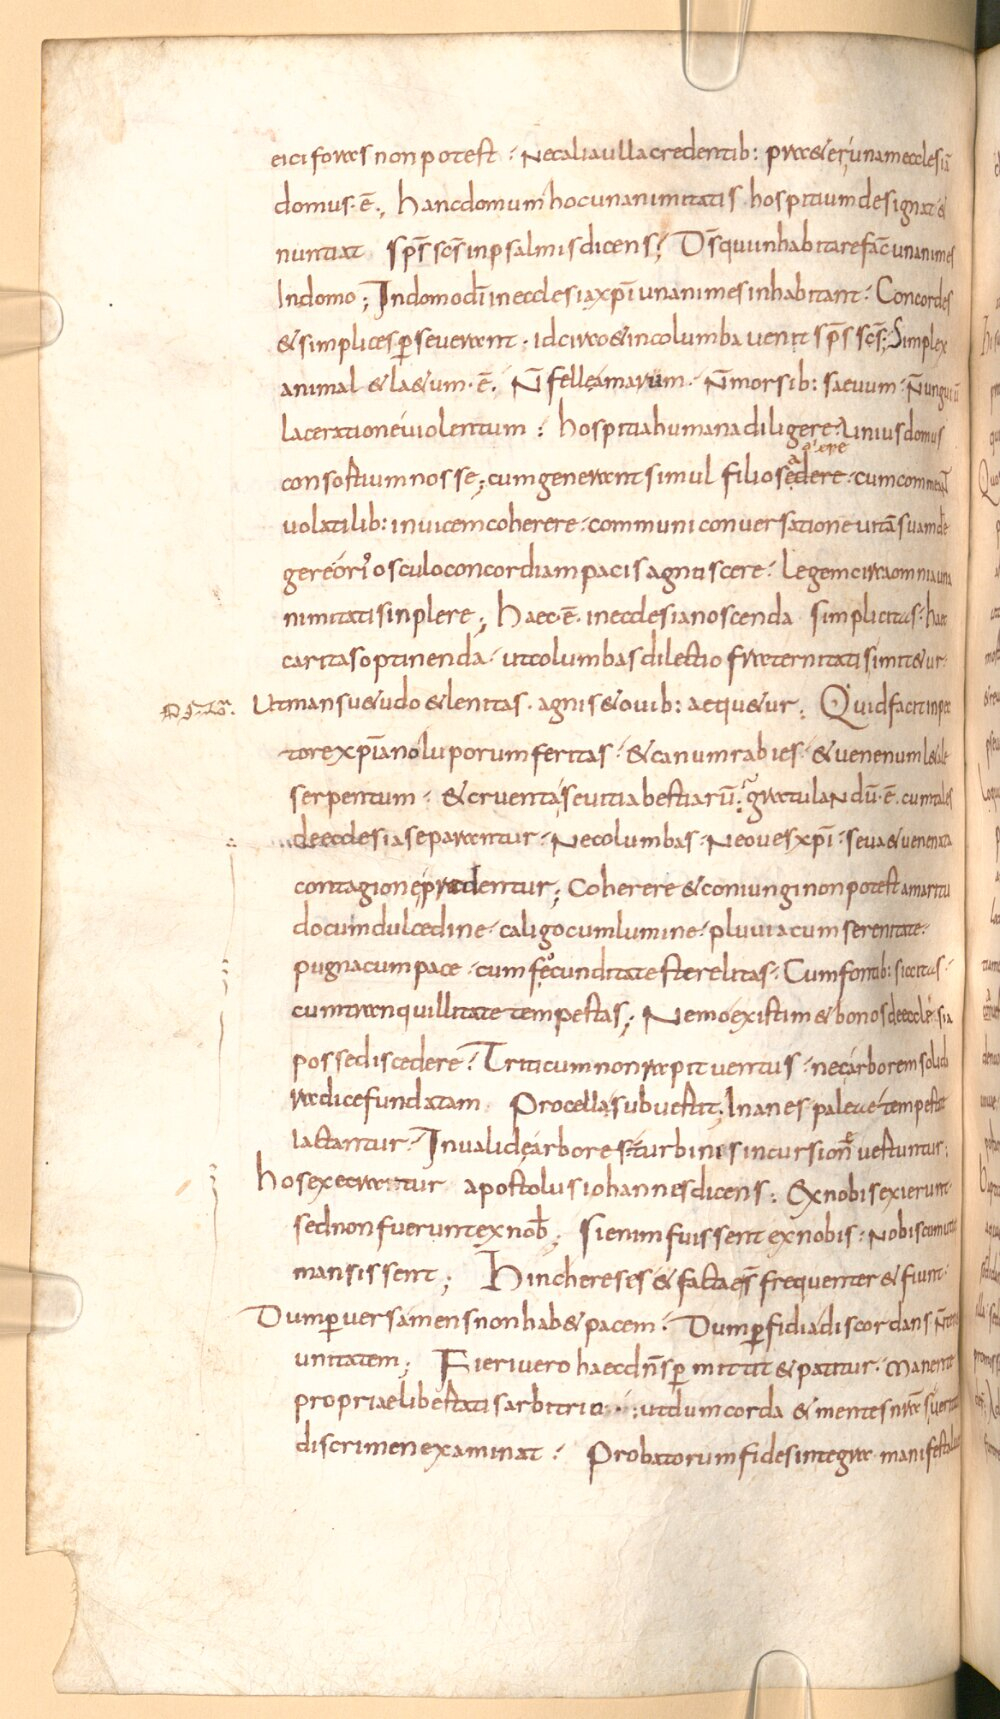 eici foras non potest · Nec alia ulla credentib: praeter unam ecclesiā
domus · ē ., hanc domum hoc unanimitatis hospitium designat &
nuntiat sp̄s sc̄s in psalmis dicens ; Dn̄s qui inhabitare fac̄ unanimes
In domo ; In domo dī in ecclesia xpī unanimes inhabitant · Concordes
& simplices ꝑseverant · idcirco & in columba venit sp̄s sc̄s ; Simplex
animal & lætum · ē . Ñ felle amarum · Ñ morsib: saevum · Ñ unguiū
laceratione violentum : hospitia humana diligere · Unius domus
consostium nosse ; cum generant simul filios edere · cum commeant
volatilib: invicem coherere · communi conversatione vitā suam de
gere óris osculo concordiam pacis agnoscere · Legem circa omnia una
nimitatis inplere ; haec · ē · in ecclesia noscenda simplicitas · haec
caritas optinenda · ut columbas dilectio fraternitatis imit&ur ·
Ut mansu&udo & lenitas · agnis & ovib: aequ&ur ; Quid facit in pec
tore xpīano luporum feritas · & canum rabies · & venenum l&ale
serpentum · & cruenta sevitia bestiarū : gratulandū · ē . cum tales
de ecclesia separantur · Ne columbas · Ne oves xpī · seva & venenata
contagione prędentur ; Coherere & coniungi non potest amaritu
do cum dulcedine · caligo cum lumine · pluvia cum serenitate ·
pugna cum pace · cum fecunditate sterelitas · Cum fontib: siccitas ·
cum tranquillitate tempestas ; Nemo existim& bonos de ecclesia
posse discedere · Triticum non rapit ventus · nec arborem solida
radice fundatam Procella subvestit ; Inanes paleae tempestate
iactantur · Invalidę arbores turbinis incursione vestuntur ;
hos execratur apostolus iohannes dicens : Ex nobis exierunt
sed non fuerunt ex nob̄ ; Si enim fuissent ex nobis : Nobiscum
mansissent ; Hinc hereses & facta ēs̄ frequenter & fiunt ·
Dum ꝑversa mens non hab& pacem · Dum ꝑfidia discordans Ñ ten&
unitatem ; Fieri vero haec dn̄s ꝑmittit & patitur · Manente
propriae libestatis arbitrio · : ut dum corda & mentes nr̄as veritatis
discrimen examinat : Probatorum fides integra manifesta